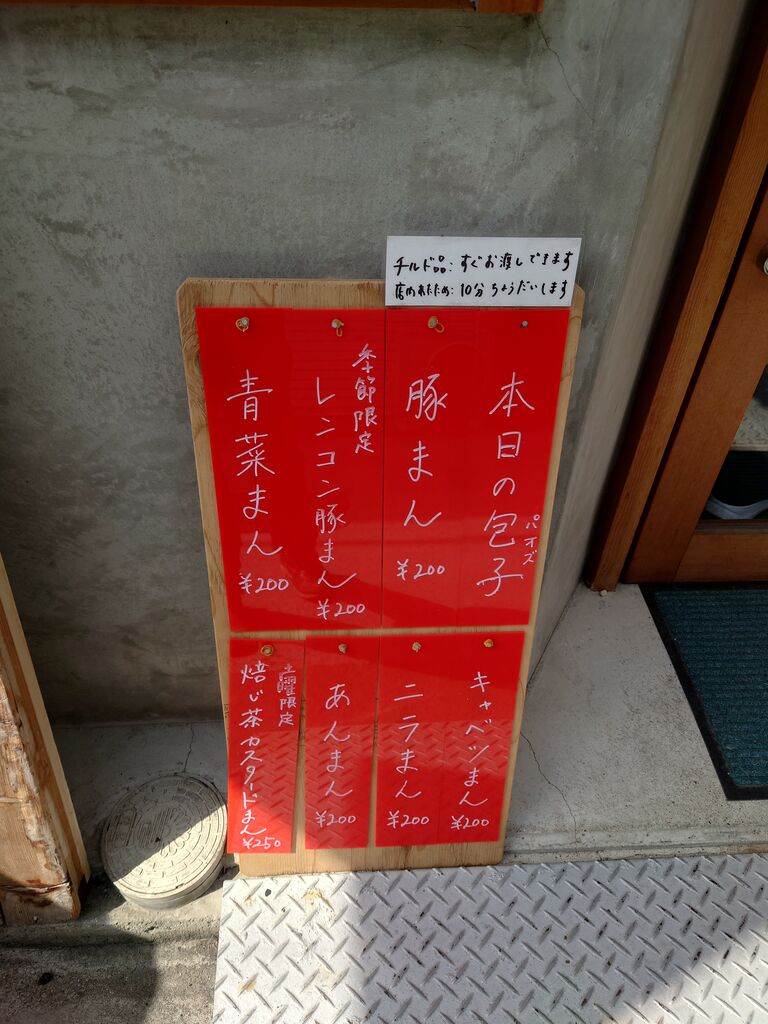 チルド品:すぐお渡しできます
店内あたため:10分ちょうだいします
本日の包子
パオズ
豚まん
¥200
季節限定
レンコン豚まん
¥200
青菜まん
¥200
キャベツまん
¥200
ニラまん
¥200
あんまん
¥200
土曜限定
焙じ茶カスタードまん
¥250